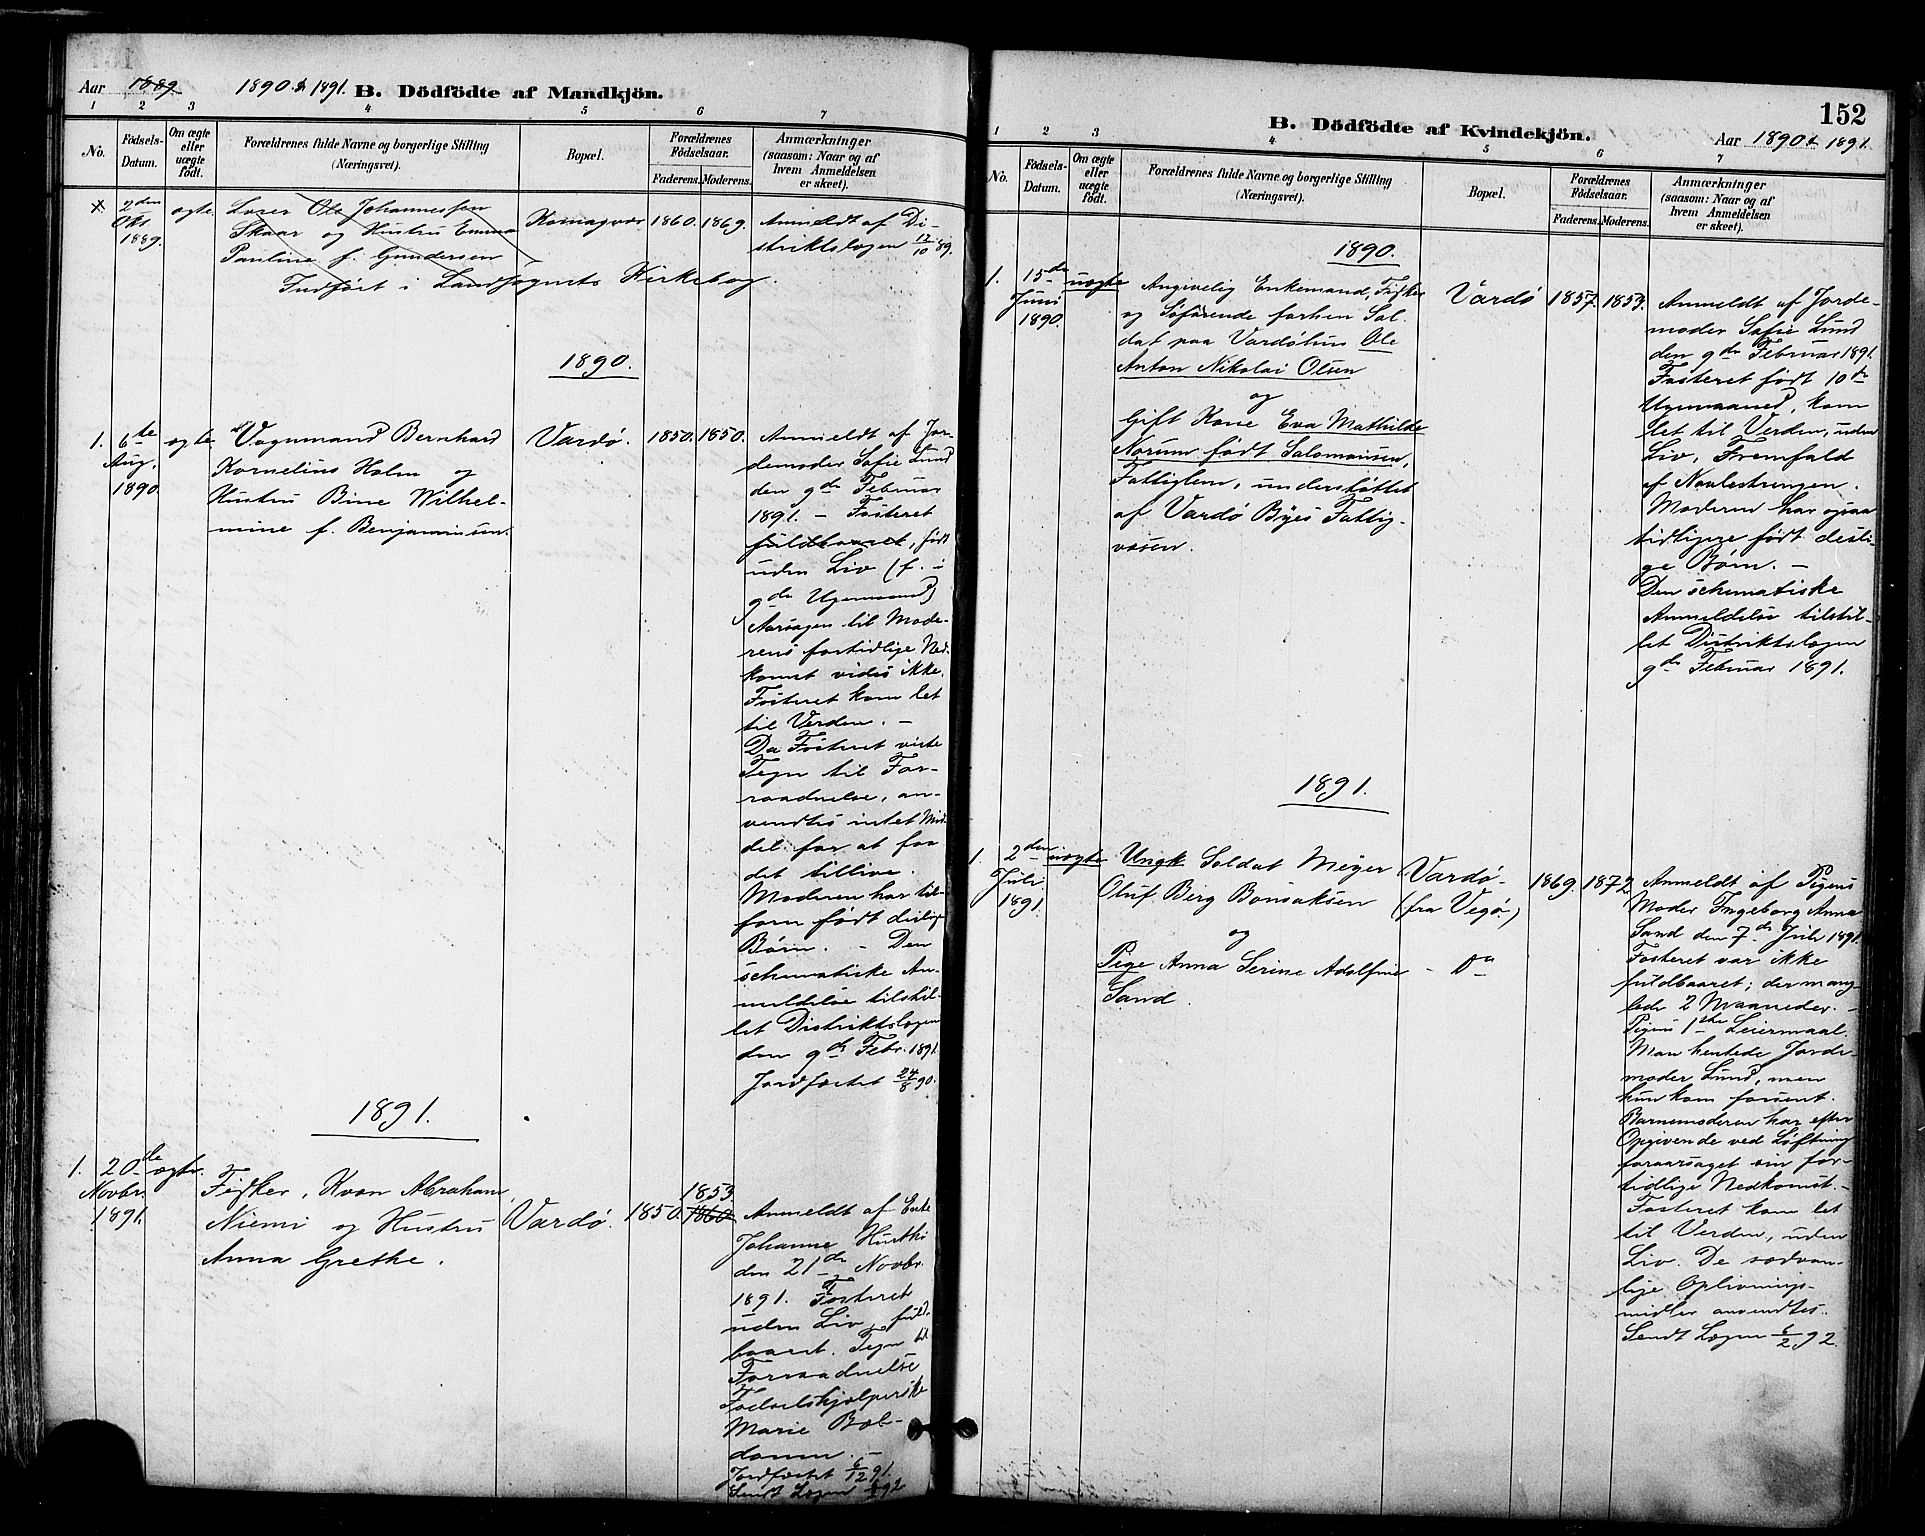 Aar 1889 1890 & 1891. B. Dödfödte af Mandkjön.
1 2 3 4 5 6 7
No.
Födsels-
Datum.
Om ægte
eller
uægte
födt.
Forældrenes fulde Navne og borgerlige Stilling
(Næringsvei).
Bopæl.
Forældrenes
Födselsaar.
Faderens. Moderens.
Anmærkninger
(saasom: Naar og af
hvem Anmeldelsen
er skeet).
2den
Okt
1889.
ægte
Ole Johannessen
Skaar og Hustru Emma
Pauline f. Gundersen
Komagvær
1860. 1869.
Anmeldt af Di-
striktslægen 17/10 89.
Indført i Landsognets Kirkebog.
1890.
1.
6te
Aug.
1890.
ægte
Vognmand Bernhard
Kornelius Holm og
Hustru Bine Wilhel-
mine f. Benjaminsen.
Vardö.
1850. 1850.
Anmeldt af Jor-
demoder Sofie Lund
den 9de Februar
1891. – Fosteret
fuldbaaret, født
uden Liv (f. i
9de Ugemaaned)
Aarsagen til Mode-
rens fortidlige Ned-
komst vides ikke.
Fosteret kom let
til Verden. –
Da Fosteret viste
Tegn til For-
raadnelse, an-
vendtes intet Mid-
del for at faa
det tillive.
Moderen har til-
forn født deslige
Børn. – Den
schematiske An-
meldelse tilstil-
let Distriktslægen
den 9de Febr. 1891.
Jordfæstet 24/8 90.
1891.
1.
20de
Novbr.
1891.
ægte.
Fisker, Kvæn Abraham
Niemi og Hustru
Anna Grethe.
Vardö.
1850. 1853.
1860.
Anmeldt af Enke
Johanne
den 21de Novbr.
1891. Fosteret
uden Liv, fuld-
baaret. Tegn til
Forraadnelse
Fødselshjælperske
Marie Bol-
damm. –
Jordfæstet 6/12 91.
Sendt Lægen 6/2 92
152
B. Dödfödte af Kvindekjön.
Aar 1890 & 1891.
1 2 3 4 5 6 7
No.
Födsels-
Datum.
Om ægte
eller
uægte
födt.
Forældrenes fulde Navne og borgerlige Stilling
(Næringsvei).
Bopæl.
Forældrenes
Födselsaar.
Faderens. Moderens.
Anmærkninger
(saasom: Naar og af
hvem Anmeldelsen
er skeet).
1890.
1.
15de
Juni
1890.
uægte
Angivelig Enkemand, Fisker
og Søfarende forhen Sol-
dat paa Vardøhus Ole
Anton Nikolai Olsen
og
Gift Kone Eva Mathilde
Norum født Salomonsen,
Fattiglem, understøttet
af Vardö Byes Fattig-
væsen.
Vardö
1857. 1853.
Anmeldt af Jorde-
moder Sofie Lund
den 9de Februar 1891.
Fosteret født 10de
Ugemaaned, kom
let til Verden, uden
Liv, Fremfald
af Navlestrengen.
Moderen har ogsaa
tidligere født desli-
ge Børn. –
Den schematiske
Anmeldelse tilstil-
let Distriktslægen
9de Februar 1891.
1891.
1.
2den
Juli
1891.
uægte
Ungk. Soldat Meyer
Oluf Berg Bonsaksen
og
Pige Anna Serine Adolfine
Sand.
Vardö-
(fra Vegö)
– Do
1869. 1872.
Anmeldt af Pigens
Moder Ingeborg Anna
Sand den 7de Juli 1891.
Fosteret var ikke
fuldbaaret; der mang-
lede 2 Maaneder. –
Pigens 1ste Leiermaal.
Man hentede Jorde-
moder Lund, men
hun kom forsent.
Barnemoderen har efter
Opgivende ved Løftning
foraarsaget sin for-
tidlige Nedkomst.
Fosteret kom let
til Verden, uden
Liv. De sædvan-
lige Oplivnings-
midler anvendtes.
Sendt Lægen 6/2 92.